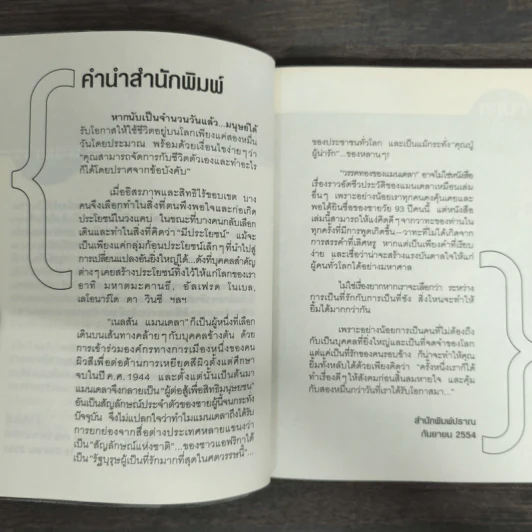 คำนำสำนักพิมพ์
หากนับเป็นจำนวนวันแล้ว...มนุษย์ได้
รับโอกาสให้ใช้ชีวิตอยู่บนโลกเพียงแค่สองหมื่น
วันโดยประมาณ พร้อมด้วยเงื่อนไขง่ายๆว่า
"คุณสามารถจัดการกับชีวิตตัวเองและทำอะไร
ก็ได้โดยปราศจากข้อบังคับ"
เมื่ออิสรภาพและสิทธิไร้ขอบเขต บาง
คนจึงเลือกทำในสิ่งที่ตนพึงพอใจและก่อเกิด
ประโยชน์ในวงแคบ ในขณะที่บางคนกลับเลือก
เดินและทำในสิ่งที่คิดว่า "มีประโยชน์" แม้จะ
เป็นเพียงแค่กลุ่มก้อนประโยชน์เล็กๆที่นำไปสู่
การเปลี่ยนแปลงอันยิ่งใหญ่ได้...ดังที่บุคคลสำคัญ
ต่างๆเคยสร้างประโยชน์ทิ้งไว้ให้แก่โลกของเรา
อาทิ มหาตมะคานธี, อัลเฟรด โนเบล,
เลโอนาร์โด ดา วินซี ฯลฯ
"เนลสัน แมนเดลา" ก็เป็นผู้หนึ่งที่เลือก
เดินบนเส้นทางคล้ายๆกับบุคคลข้างต้น ด้วย
การเข้าร่วมองค์กรทางการเมืองหนึ่งของคน
ผิวสีเพื่อต่อต้านการเหยียดสีผิวตั้งแต่ศึกษา
จบในปี ค.ศ. 1944 และตั้งแต่นั้นเป็นต้นมา
แมนเดลาจึงกลายเป็น "ผู้ต่อสู้เพื่อสิทธิมนุษยชน"
อันเป็นสัญลักษณ์ประจำตัวของชายผู้นี้จนกระทั่ง
ปัจจุบัน จึงไม่แปลกใจว่าทำไมแมนเดลาถึงได้รับ
การยกย่องจากสื่อต่างประเทศหลายแขนงว่า
เป็น "สัญลักษณ์แห่งชาติ"...ของชาวแอฟริกาได้
เป็น "รัฐบุรุษผู้เป็นที่รักมากที่สุดในศตวรรษนี้"...
ของประชาชนทั่วโลก และเป็นแม้กระทั่ง "คุณปู่
ผู้น่ารัก"...ของหลานๆ!
"วรรคทองของแมนเดลา" อาจไม่ใช่หนังสือ
เรื่องราวอัตชีวประวัติของแมนเดลาเหมือนเล่ม
อื่นๆ เพราะอย่างน้อยเราทุกคนคงคุ้นเคยและ
พอได้ยินชื่อของชายวัย 93 ปีคนนี้ แต่หนังสือ
เล่มนี้สามารถทำให้แง่คิดดีๆจากวาทะของท่านใน
ทุกครั้งที่มีการพูดเกิดขึ้น—วาทะที่ไม่ได้เกิดจาก
การสรรคำที่เลิศหรู หากแต่เป็นเพียงคำที่เรียบ
ง่าย และเชื่อว่าน่าจะสร้างแรงบันดาลใจให้แก่
ผู้คนทั่วโลกได้อย่างมหาศาล
ไม่ใช่เรื่องยากหากเราจะเลือกว่า ระหว่าง
การเป็นที่รักกับการเป็นที่ชัง สิ่งไหนจะทำให้
ยิ้มได้มากกว่ากัน
เพราะอย่างน้อยการเป็นคนที่ไม่ต้องถึง
กับเป็นบุคคลที่ยิ่งใหญ่และเป็นที่จดจำของโลก
แต่แค่เป็นที่รักของคนรอบข้าง ก็น่าจะทำให้คุณ
ยิ้มทั้งหลับได้ด้วยเพียงคิดว่า "ครั้งหนึ่งเราก็ได้
ทำเรื่องดีๆให้สังคมก่อนสิ้นลมหายใจ และคุ้ม
กับสองหมื่นกว่าวันที่เราได้รับโอกาสมา..."
สำนักพิมพ์ปราณ
กันยายน 2554